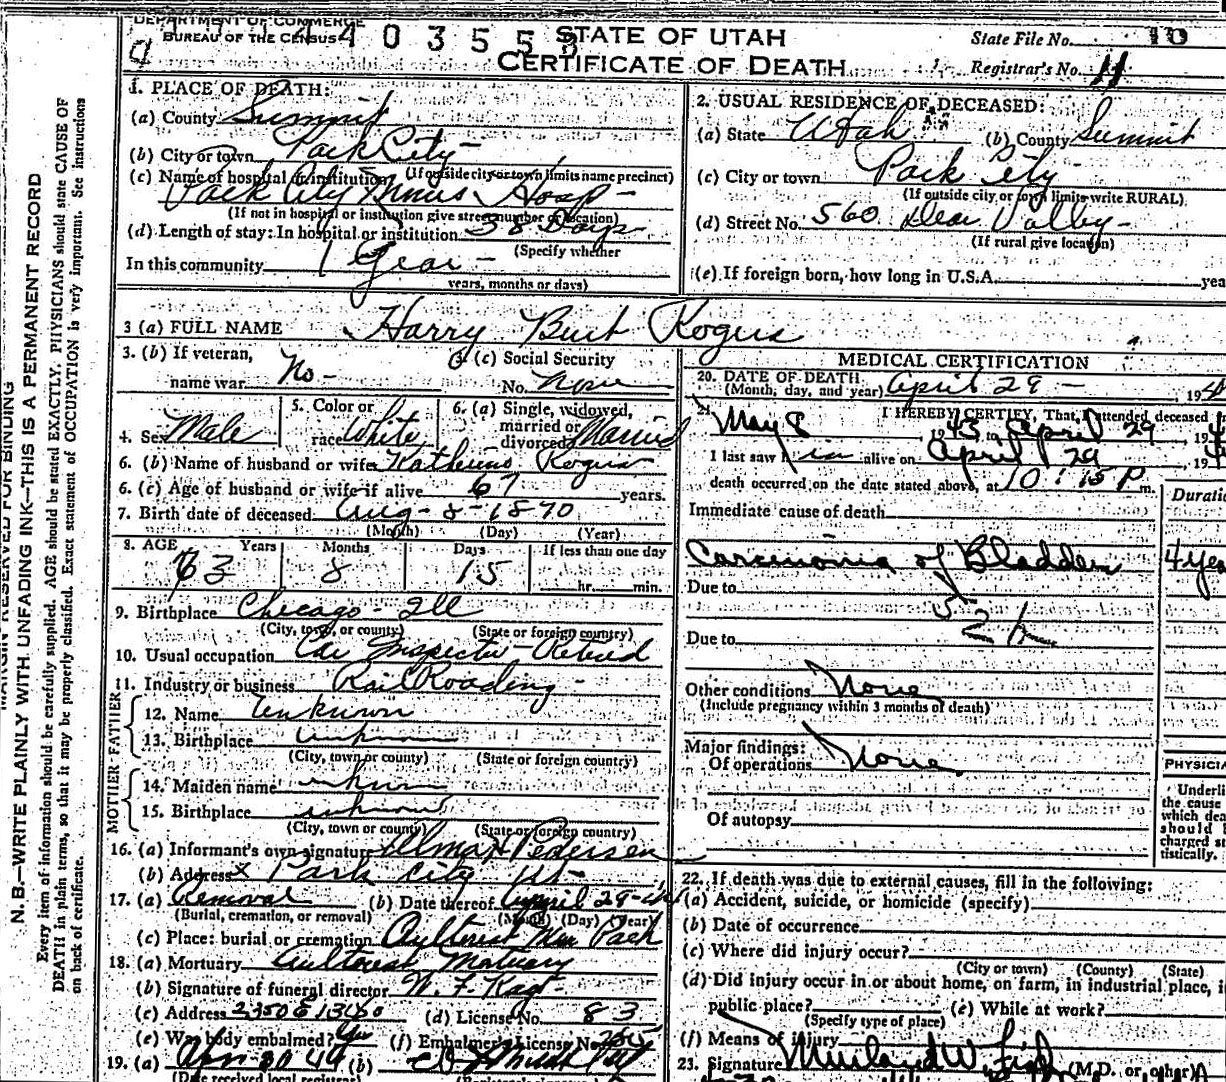 DEPARTMENT OF COMMERCE
BUREAU OF THE CENSUS
STATE OF UTAH
CERTIFICATE OF DEATH
State File No. 10
Registrar's No. 11
1. PLACE OF DEATH:
(a) County Summit
(b) City or town Park City
(If outside city or town limits name precinct)
(c) Name of hospital or institution
Park City Miners Hosp
(If not in hospital or institution give street number or location)
(d) Length of stay: In hospital or institution 38 Days
(Specify whether
In this community 1 Year
years, months or days)
2. USUAL RESIDENCE OF DECEASED:
(a) State Utah (b) County Summit
(c) City or town Park City
(If outside city or town limits write RURAL)
(d) Street No. 560 Dear Valley
(If rural give location)
(e) If foreign born, how long in U.S.A. yea
3 (a) FULL NAME Harry Burt Rogers
3. (b) If veteran,
name war No
3 (c) Social Security
No. None
4. Sex Male
5. Color or
race White
6. (a) Single, widowed,
married or
divorced Married
6. (b) Name of husband or wife Katherine Rogers
6. (c) Age of husband or wife if alive 67 years.
7. Birth date of deceased Aug-8-1870
(Month) (Day) (Year)
8. AGE Years Months Days If less than one day
8 15 hr. min.
9. Birthplace Chicago Ill
(City, town, or county) (State or foreign country)
10. Usual occupation Car Inspector-Retired
11. Industry or business RailRoading
FATHER
12. Name unknown
13. Birthplace unknown
(City, town or county) (State or foreign country)
MOTHER
14. Maiden name unknown
15. Birthplace unknown
(City, town or county) (State or foreign country)
16. (a) Informant's own signature Pedersen
(b) Address x Park City Ut
17. (a) Removal (b) Date thereof April 29-44
(Burial, cremation, or removal) (Month) (Day) (Year)
(c) Place: burial or cremation
18. (a) Mortuary Mortuary
(b) Signature of funeral director W. F.
(c) Address 2350 E 13 (d) License No. 83
(e) Was body embalmed? Yes (f) Embalmer's License No.
19. (a) Apr 30 44 (b)
(Date received local registrar)
MEDICAL CERTIFICATION
20. DATE OF DEATH
(Month, day, and year) April 29 , 194
21. I HEREBY CERTIFY, That I attended deceased
May 8 1943 to April 29 194
I last saw him alive on April 29 , 194
death occurred on the date stated above, at 10:15 P m.
Immediate cause of death Duratio
Carcinoma of Bladder 4 yea
Due to
52
Due to
Other conditions None
(Include pregnancy within 3 months of death)
Major findings:
Of operations None
Of autopsy
PHYSICIA
Underli
the cause
which dea
should
charged st
tistically.
22. If death was due to external causes, fill in the following:
(a) Accident, suicide, or homicide (specify)
(b) Date of occurrence
(c) Where did injury occur?
(City or town) (County) (State)
(d) Did injury occur in or about home, on farm, in industrial place, i
public place? (e) While at work?
(Specify type of place)
(f) Means of injury
23. Signature (M.D. or other)
MARGIN RESERVED FOR BINDING
N. B.—WRITE PLAINLY WITH UNFADING INK—THIS IS A PERMANENT RECORD
Every item of information should be carefully supplied. AGE should be stated EXACTLY. PHYSICIANS should state CAUSE OF
DEATH in plain terms, so that it may be properly classified. Exact statement of OCCUPATION is very important. See instructions
on back of certificate.